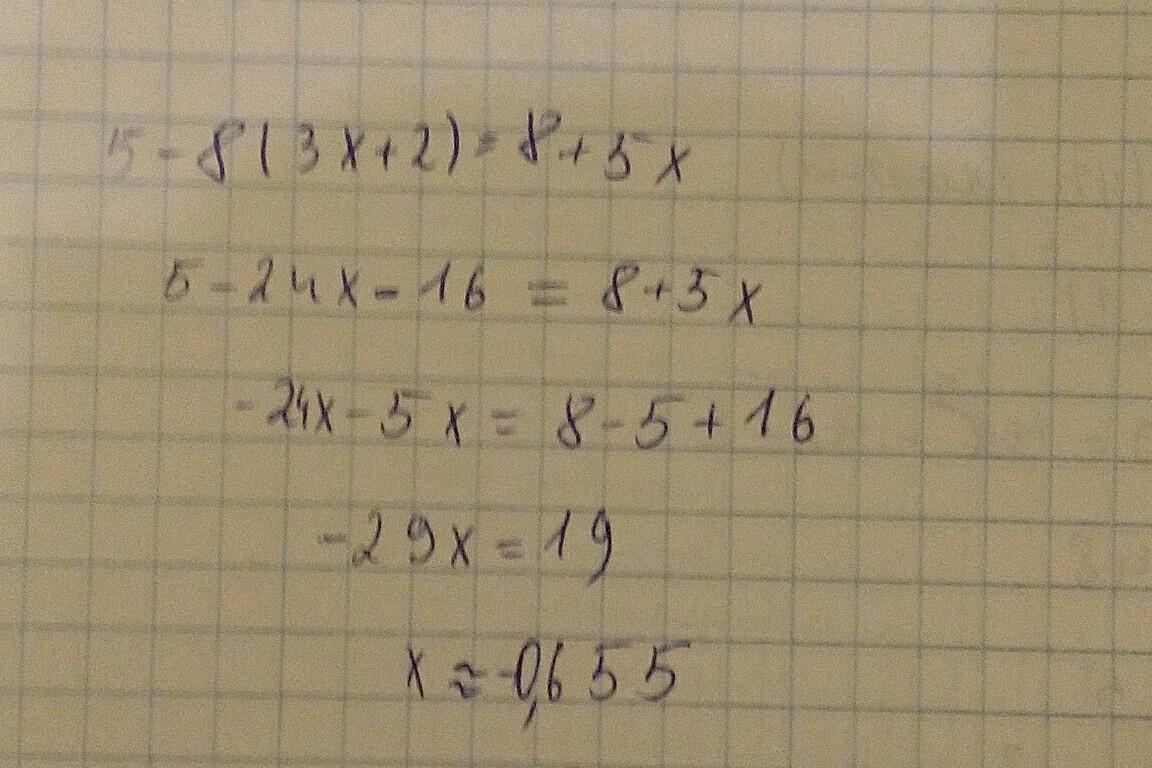 5-8(3x+2)=8+5x
5-24x-16=8+5x
-24x-5x=8-5+16
-29x=19
x≈-0,655